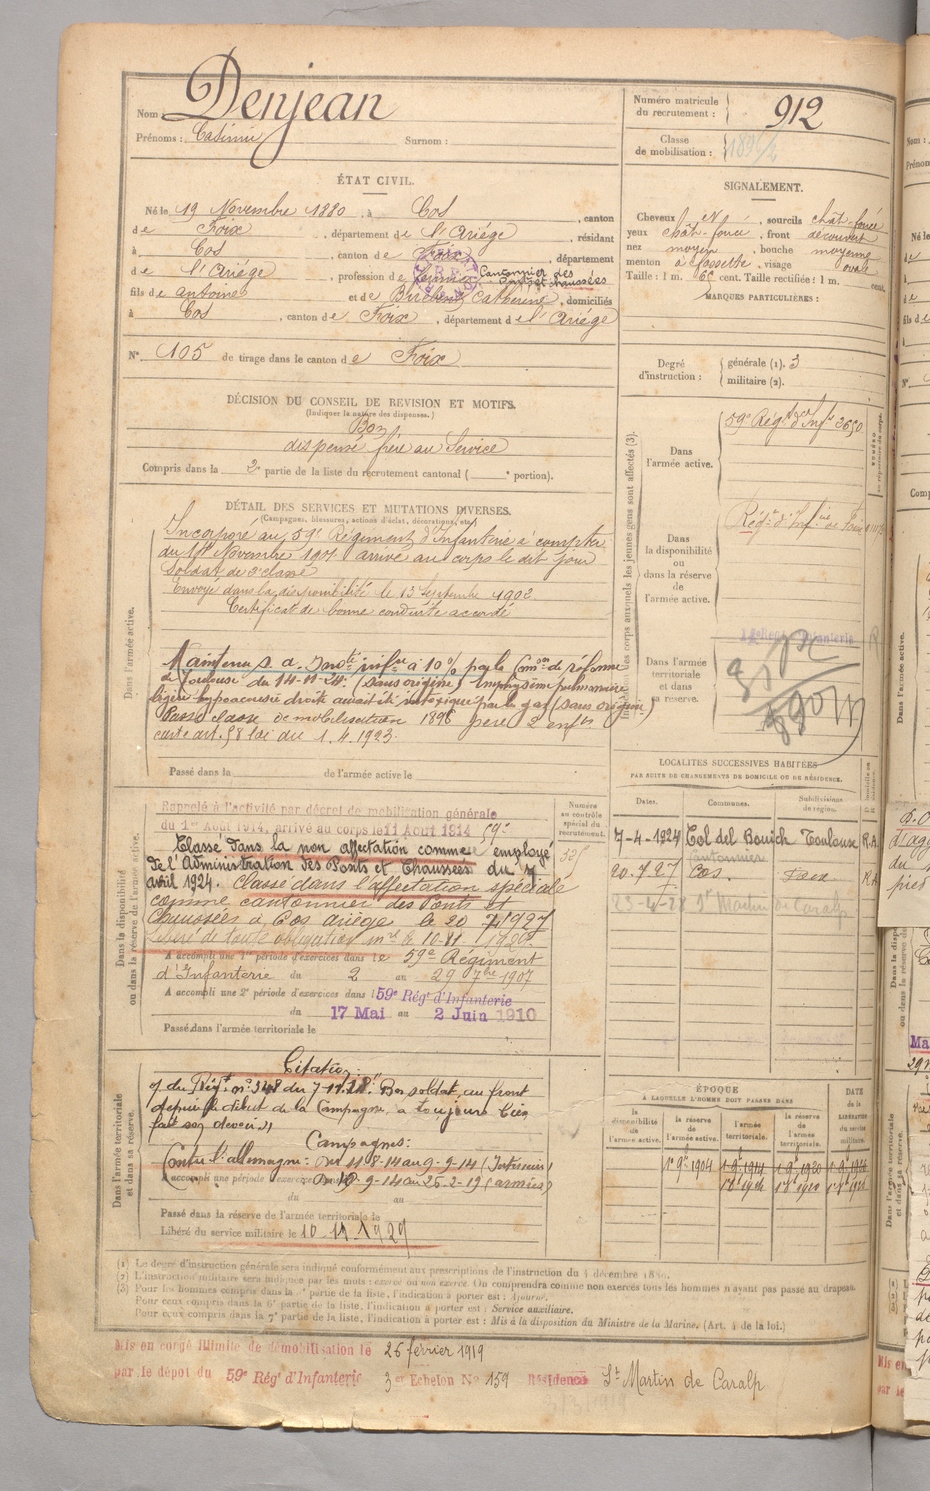 Nom : Denjean
Prénoms : Casimir Surnom :
Numéro matricule du recrutement : 912
Classe de mobilisation :
ÉTAT CIVIL.
Né le 19 Novembre 1880, à Cos, canton
de Foix, département de l'Ariége, résidant
à Cos, canton de Foix, département
de l'Ariége, profession de Cantonnier des Ponts et chaussées
fils de antoine et de Catherine, domiciliés
à Cos, canton de Foix, département de l'Ariége
N° 105 de tirage dans le canton de Foix
SIGNALEMENT.
Cheveux , sourcils chât-foncé
yeux chât-foncé, front découvert
nez moyen, bouche moyenne
menton à fossette, visage ovale
Taille : 1 m. 65 cent. Taille rectifiée : 1 m. cent.
MARQUES PARTICULIÈRES :
Degré d'instruction : générale (1). 3
militaire (2).
DÉCISION DU CONSEIL DE REVISION ET MOTIFS.
(Indiquez la nature des dispenses.)
Bon
dispensé frère au Service
Compris dans la 2e partie de la liste du recrutement cantonal ( e portion).
DÉTAIL DES SERVICES ET MUTATIONS DIVERSES.
(Campagnes, blessures, actions d'éclat, décorations, etc.)
Dans l'armée active.
Incorporé au 59e Régiment d'Infanterie à compter
du Novembre 1901 arrivé au corps le dit jour
Soldat de 2e classe
Envoyé dans la disponibilité le 13 Septembre 1902
Certificat de bonne conduite accordé
Maintenu s. a. Invté infre à 10 % par la Cmson de réforme
de Toulouse du 14-11-24. (sans origine) Emphysème pulmonaire
légère hypoacousie droite aurait été intoxiqué par le gaz (sans origine)
Passe classe de mobilisation 1896 père 2 enfts
carte art. 58 loi du 1.4.1923.
Passé dans la de l'armée active le
Les corps auxquels les jeunes gens sont affectés (3).
Dans l'armée active.
59e Régt d'Infie 3650
Dans la disponibilité ou dans la réserve de l'armée active.
Régt d'Infie de Foix
Dans l'armée territoriale et dans sa réserve.
LOCALITÉS SUCCESSIVES HABITÉES
PAR SUITE DE CHANGEMENTS DE DOMICILE OU DE RÉSIDENCE.
Dates. Communes. Subdivisions de région.
7-4-1924 Col del Bouich Toulouse R.A
20.7.27 Cos. Foix R.A
23-4-28 St Martin de Caralp
Dans la disponibilité ou dans la réserve de l'armée active.
Numéro au contrôle spécial du recrutement.
Rappelé à l'activité par décret de mobilisation générale
du 1er Août 1914, arrivé au corps le 11 Août 1914 59e
Classé dans la non affectation comme employé
de l'Administration des Ponts et Chaussées du 7
avril 1924. Classé dans l'affectation spéciale
comme cantonnier des Ponts et
Chaussées à Cos Ariège le 20 7 1927
Libéré de toute obligation
A accompli une 1re période d'exercices dans le 59e Régiment
d'Infanterie du 2 au 29 7bre 1907
A accompli une 2e période d'exercices dans le 59e Régt d'Infanterie
du 17 Mai au 2 Juin 1910
Passé dans l'armée territoriale le
Dans l'armée territoriale et dans sa réserve.
Citation:
du Régt n° 348 du 7-11-18 "Bon soldat, au front
depuis le début de la Campagne, a toujours bien
fait son devoir"
Campagnes:
Contre l'allemagne: du 11-8-14 au 9-9-14 (Intérieur)
A accompli une période d'exercices
Du 10-9-14 au 25-2-19 (armées)
du au
Passé dans la réserve de l'armée territoriale le
Libéré du service militaire le 10-11-1929
ÉPOQUE
À LAQUELLE L'HOMME DOIT PASSER DANS
la disponibilité de l'armée active.
la réserve de l'armée active.
l'armée territoriale.
la réserve de l'armée territoriale.
DATE de la LIBÉRATION du service militaire.
(1) Le degré d'instruction générale sera indiqué conformément aux prescriptions de l'instruction du 4 décembre
(2) L'instruction militaire sera indiquée par les mots : exercé ou non exercé. On comprendra comme non exercés tous les hommes n'ayant pas passé au drapeau.
(3) Pour les hommes compris dans la partie de la liste, l'indication à porter est : Ajourné.
Pour ceux compris dans la 6e partie de la liste, l'indication à porter est : Service auxiliaire.
Pour ceux compris dans la 7e partie de la liste, l'indication à porter est : Mis à la disposition du Ministre de la Marine. (Art. 4 de la loi.)
Mis en congé illimité de démobilisation le 26 février 1919
par le dépôt du 59e Régt d'Infanterie 3e Echelon N° 159 Résidence St Martin de Caralp